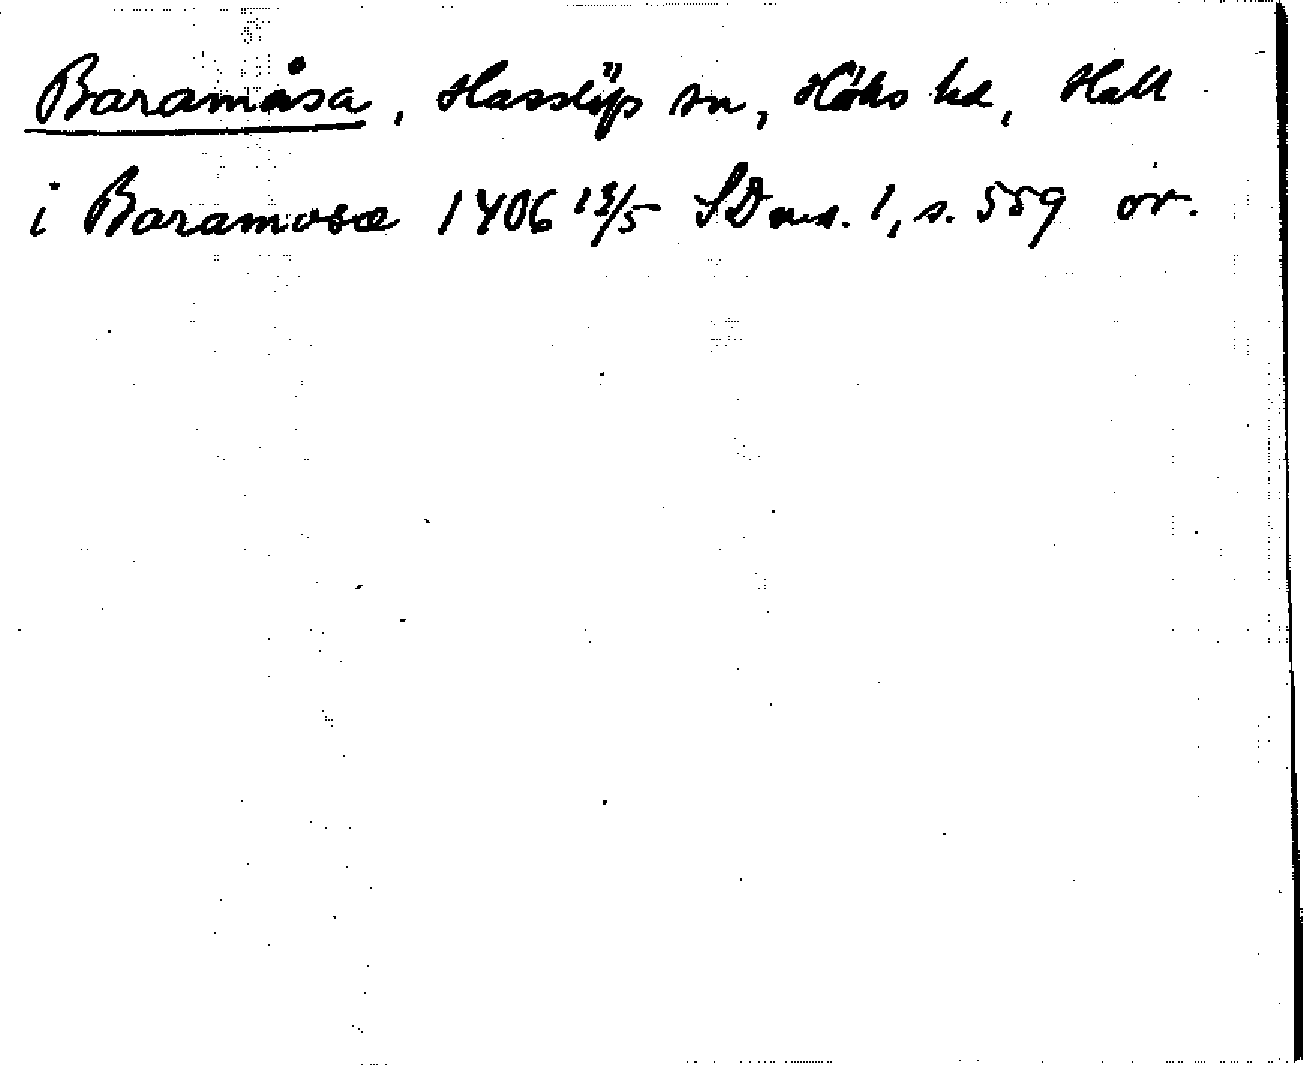 Baramåsa, Hasslöfs sn, Höks hd, Hall
i Baramosæ 1406 13/5 SD ns. 1, s. 559 or.